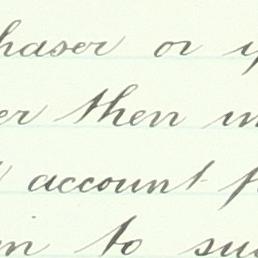 haser or
er then
account
to